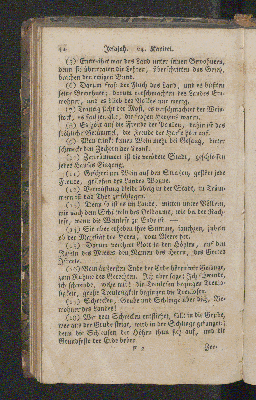 44 Jesajah. 24. Kapitel.
(5) Entweihet war das Land unter seinen Bewohnern,
denn sie übertraten die Lehren, überschritten das Gesetz,
brachen den ewigen Bund.
(6) Darum fraß der Fluch das Land, und es büßten
seine Bewohner; darum verschmachten des Landes Ein-
wohner, und es blieb des Volkes nur wenig.
(7) Traurig steht der Most, es verschmachtet der Wein-
stock, es seufzen alle, die frohen Herzens waren.
(8) Es hört auf die Freude der Pauken,
die Freude der Harfe hört auf.
(9) Man trinkt keinen Wein mehr bei Gesang, bitter
schmeckt den Zechern der Trank.
(10) Zertrümmert ist die verödete Stadt, geschlossen
jedes Hauses Eingang.
(11) Geschrei um Wein auf den Straßen, jede
Freude, des Landes Wonne.
(12) Verwüstung bleibt übrig in der Stadt, in Trüm-
mern das Thor geschlagen.
(13) Denn so ist es im Lande, mitten unter Völkern,
wie nach dem Schütteln des Oelbaums, wie bei der Nach-
lese, wenn die Weinlese zu Ende ist. —
(14) Sie aber erheben ihre Stimme, jauchzen,
der Majestät des Herrn, vom Meere her.
(15) Darum verehret Gott in den Höhen, auf den
Inseln des Meeres den Namen des Herrn, des Gottes
Israels.
(16) Vom äußersten Ende der Erde hören wir Gesänge,
zum Ruhme des Gerechten. Ich aber sage: Ich
ich schwinde, wehe mir! die Treulosen begingen Treulo-
sigkeit, große Treulosigkeit begingen die Treulosen.
(17) Schrecken, Grube und Schlinge über dich, Be-
wohner des Landes!
(18) Wer dem Schrecken entfliehet, fällt in die Grube,
wer aus der Grube steigt, wird in der Schlinge gefangen;
denn die Schleusen der Höhen thun sich auf, und die
Grundfeste der Erde beben.
Zer-